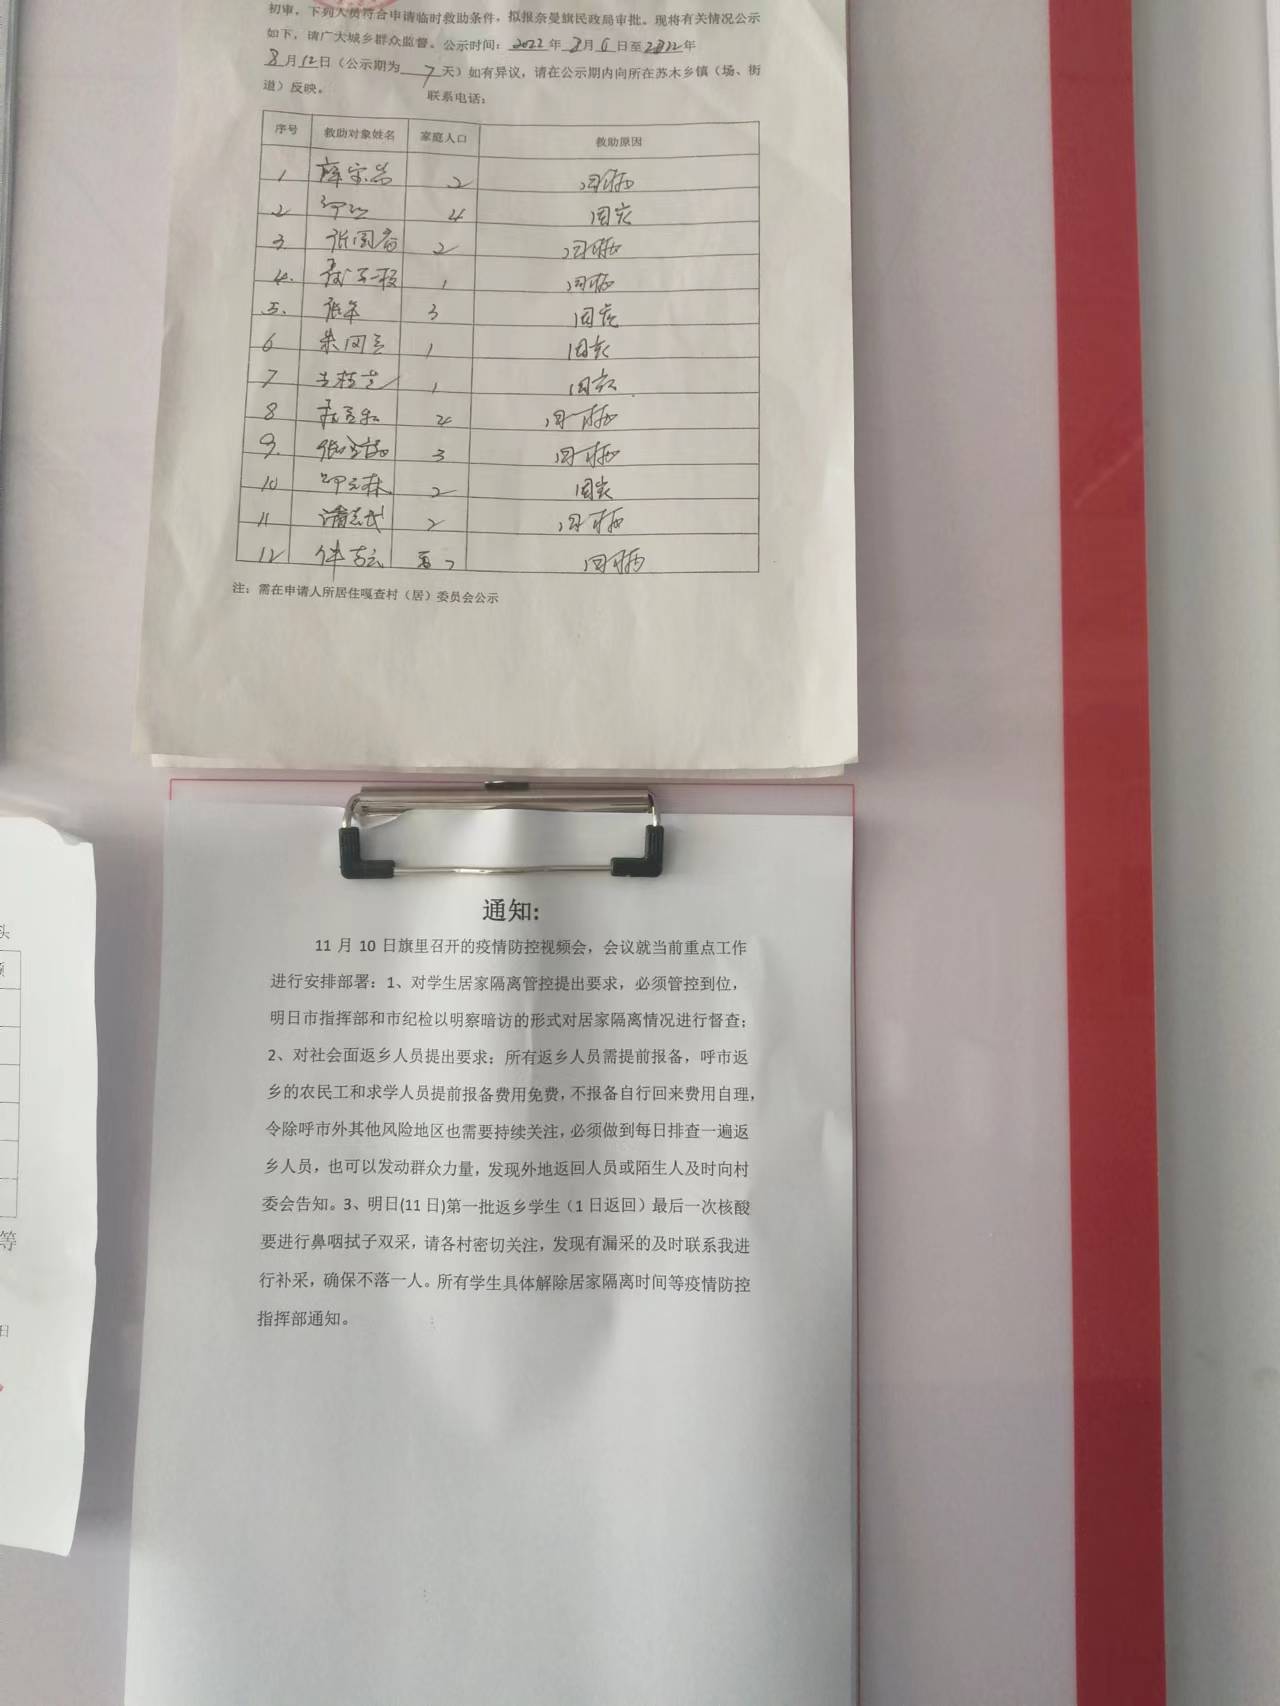 初审，下列人员符合申请临时救助条件，拟报奈曼旗民政局审批。现将有关情况公示
如下，请广大城乡群众监督。公示时间：2022年8月6日至2022年
8月12日（公示期为7天）如有异议，请在公示期内向所在苏木乡镇（场、街
道）反映。 联系电话：
序号 救助对象姓名 家庭人口 救助原因
1 2 因病
2 4 因灾
3 张国富 2 因病
4. 1 因病
5. 张军 3 因灾
6 朱国 1 因灾
7 1 因灾
8 4 因病
9. 3 因病
10 2 因灾
11 潘志武 2 因病
12 2 因病
注：需在申请人所居住嘎查村（居）委员会公示
通知:
11月10日旗里召开的疫情防控视频会，会议就当前重点工作
进行安排部署：1、对学生居家隔离管控提出要求，必须管控到位，
明日市指挥部和市纪检以明察暗访的形式对居家隔离情况进行督查；
2、对社会面返乡人员提出要求：所有返乡人员需提前报备，呼市返
乡的农民工和求学人员提前报备费用免费，不报备自行回来费用自理，
令除呼市外其他风险地区也需要持续关注，必须做到每日排查一遍返
乡人员，也可以发动群众力量，发现外地返回人员或陌生人及时向村
委会告知。3、明日(11日)第一批返乡学生（1日返回）最后一次核酸
要进行鼻咽拭子双采，请各村密切关注，发现有漏采的及时联系我进
行补采，确保不落一人。所有学生具体解除居家隔离时间等疫情防控
指挥部通知。
头
额
等
日